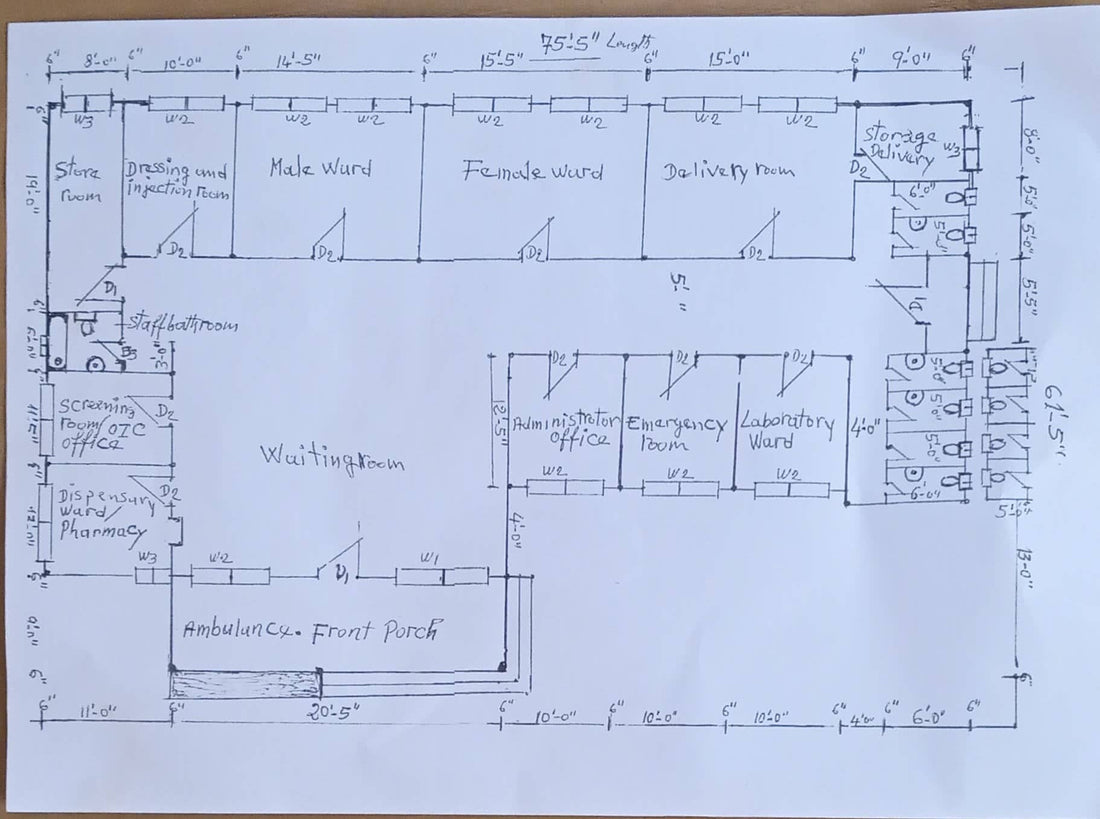 75'-5" Length
6" 8'-0" 6" 10'-0" 6" 14'-5" 6" 15'-5" 6" 15'-0" 6" 9'-0" 6"
W3 W2 W2 W2 W2 W2 W2 W2
Store
room
Dressing and
injection room
Male Ward
Female Ward
Delivery room
Storage
Delivery
W3
D2
D2
D2
D2
D2
6'-0"
8'-0"
5'-5"
61'-5"
D1
D1
5'- "
Staff bathroom
3'-0"
Screening
room/OIC
office
D2
Dispensary
Ward/
Pharmacy
D2
Waiting room
12'-5"
D2 D2 D2
Administrator
office
Emergency
room
Laboratory
Ward
4'-0"
W2 W2 W2
5'-0"
5'-0"
5'-0"
6'-0"
4'-0"
13'-0"
W3 W2 D1 W1
Ambulance. Front Porch
6"
11'-0" 6" 20'-5" 6" 10'-0" 6" 10'-0" 6" 10'-0" 6" 4'-0" 6" 6'-0" 6"